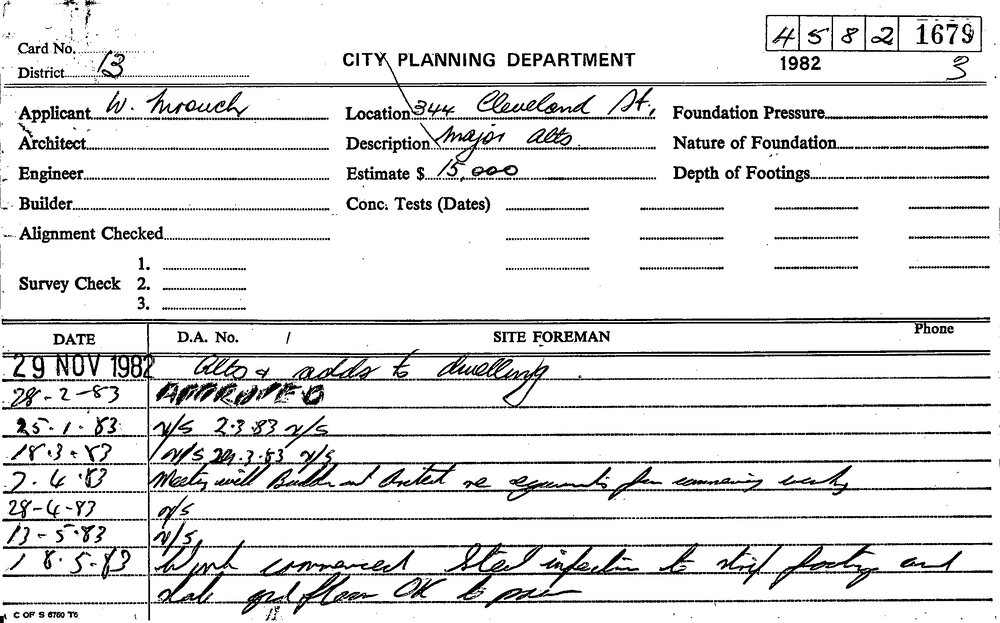 4 5 8 2 1679
Card No.
District 13
CITY PLANNING DEPARTMENT
1982 3
Applicant W.
Location 344 Cleveland St,
Foundation Pressure
Architect
Description Major Alts
Nature of Foundation
Engineer
Estimate $ 15,000
Depth of Footings
Builder
Conc. Tests (Dates)
Alignment Checked
Survey Check
1.
2.
3.
DATE D.A. No. / SITE FOREMAN Phone
29 NOV 1982 Alts & adds to dwelling.
28-2-83 APPROVED
25.1.83 n/s 2.3.83 n/s
18.3.83 n/s 24.3.83 n/s
7.4.83 Meeting with Builder and Architect re requirements for commencing work
28-4-83 n/s
13-5-83 n/s
18.5.83 Work commenced Steel inspection to strip footing and
slab grd floor OK to pour
C OF S 6760 T6